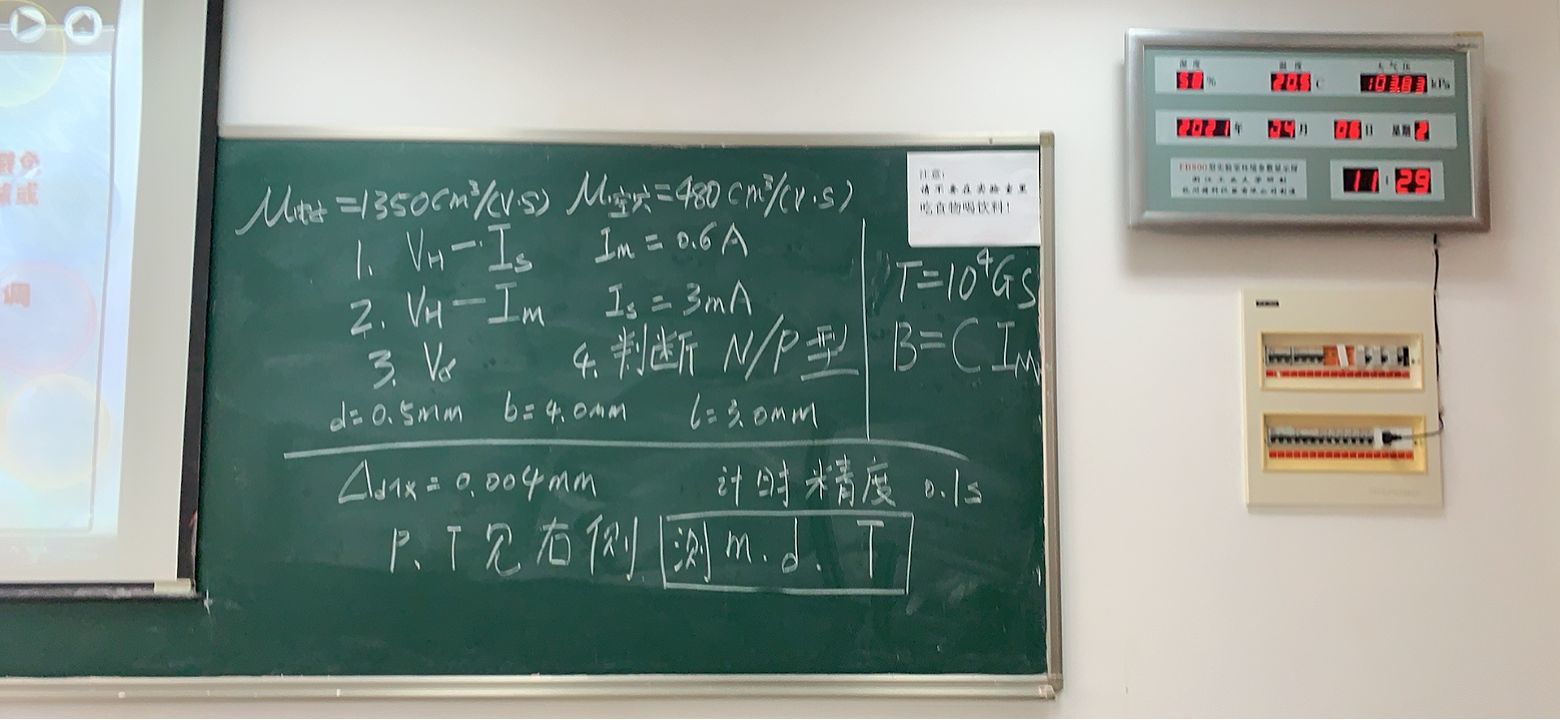 μ电子=1350cm²/(V·S) μ空穴=480cm²/(V·S)
1. VH—IS Im=0.6A
2. VH—Im Is=3mA
3. Vσ 4.判断 N/P型
d=0.5mm b=4.0mm l=3.0mm
T=10⁴GS
B=CIM
Δ仪=0.004mm 计时精度 0.1s
P、T见右侧 测m.d.T
注意:
请不要在实验室里
吃食物喝饮料!
湿度 温度 大气压
58% 20.5C 103.83kPa
2021年 04月 06日 星期2
11:29